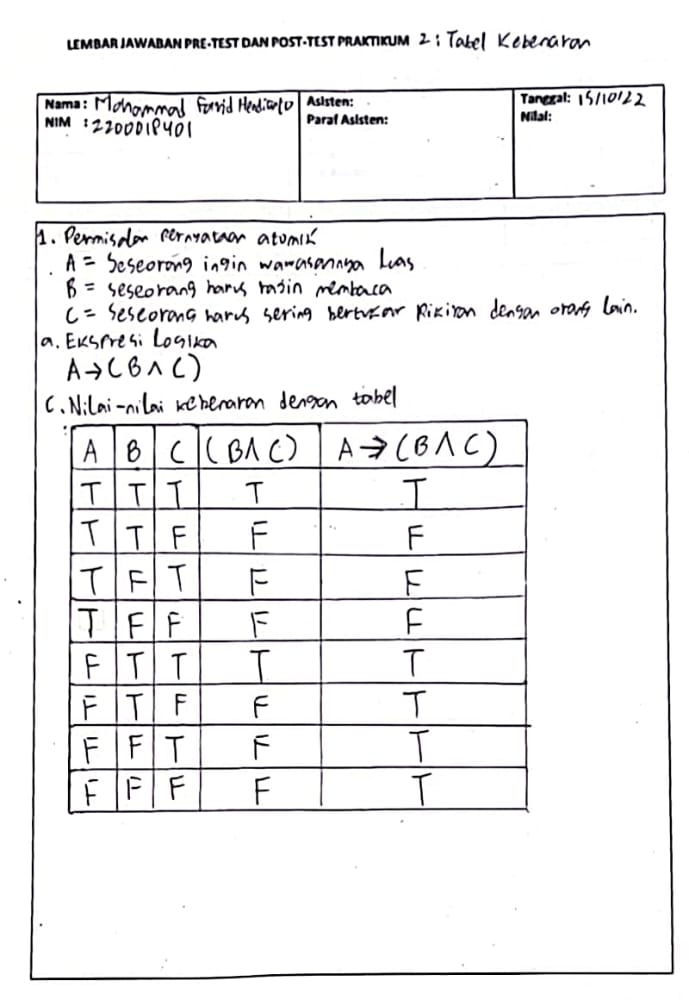 LEMBAR JAWABAN PRE-TEST DAN POST-TEST PRAKTIKUM 2 : Tabel Kebenaran
Nama : Mohammad Farid Hendianto
Asisten:
Tanggal: 15/10/22
NIM : 2200018401
Paraf Asisten:
Nilai:
1. Permisalan pernyataan atomik
A = Seseorang ingin wawasannya luas
B = seseorang harus rajin membaca
C = Seseorang harus sering bertukar pikiran dengan orang lain.
a. Ekspresi Logika
A → (B ∧ C)
C. Nilai-nilai kebenaran dengan tabel
A B C (B ∧ C) A → (B ∧ C)
T T T T T
T T F F F
T F T F F
T F F F F
F T T T T
F T F F T
F F T F T
F F F F T